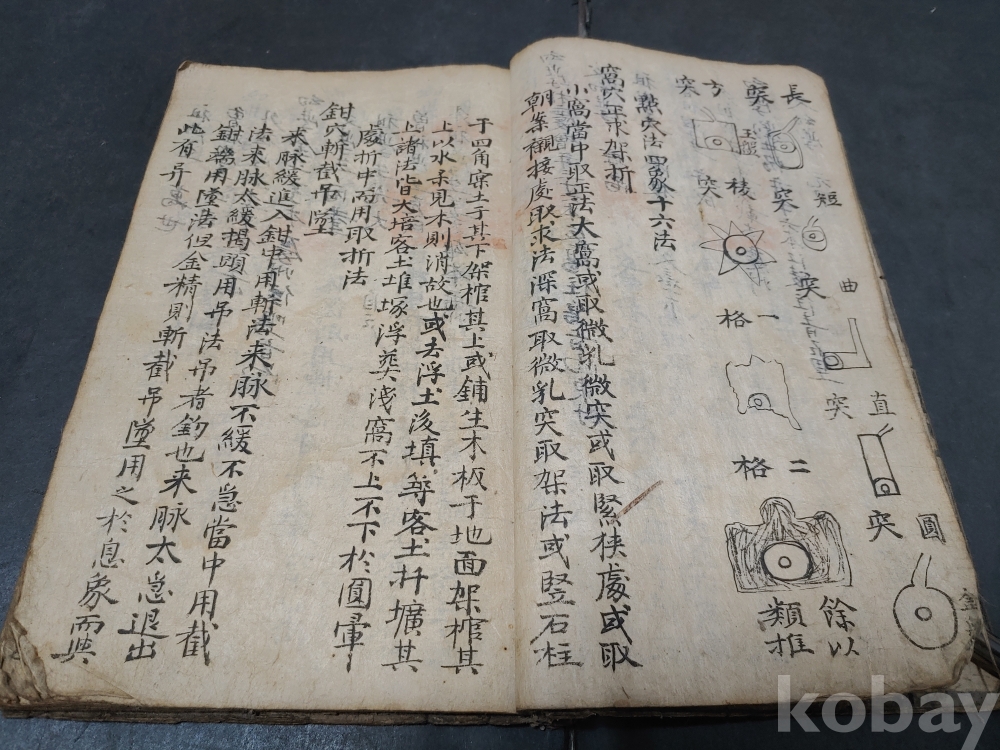 長突
短突
曲突
直突
圓突
方突
玉℃
稜突
一格
二格
餘以類推
㸃穴法四象十六法
窩穴正求架折
小窩當中取正法大窩或取微乳微突或取緊狹處或取
朝案襯接處取求法深窩取微乳突取架法或竪石柱
于四角寀土于其下架棺其上或鋪生木板于地面架棺其
上以水去見木則消故也或去浮土後填䓁客土扦壙其
上諸法皆大培客土堆塚浮葬淺窩不上不下於圓暈
處折中而用取折法
鉗穴斬截吊墜
来脉緩進入鉗中用斬法来脉不緩不急當中用截
法来脉太緩揭頭用吊法吊者鈎也来脉太急退出
鉗㗲用墜法但金精則斬截吊墜用之於息象而與
此有异
kobay